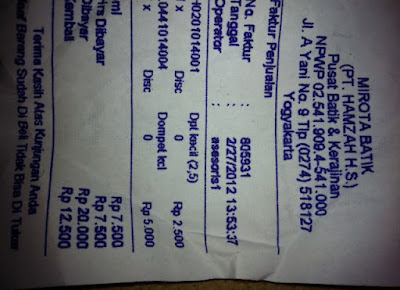 MIROTA BATIK
(PT. HAMZAH H.S.)
Pusat Batik & Kerajinan
NPWP 02.541.909.4-541.000
Jl. A Yani No. 9 Tlp (0274) 518127
Yogyakarta
Faktur Penjualan
No. Faktur : 805931
Tanggal : 2/27/2012 13:53:37
Operator : asesoris1
0201014001 Dpt kecil (2,5)
x Disc 0 Rp 2.500
0441014004 Dompet kcl
x Disc 0 Rp 5.000
Rp 7.500
Dibayar Rp 7.500
Dibayar Rp 20.000
Kembali Rp 12.500
Terima Kasih Atas Kunjungan Anda
Barang Sudah Di Beli Tidak Bisa Di Tukar